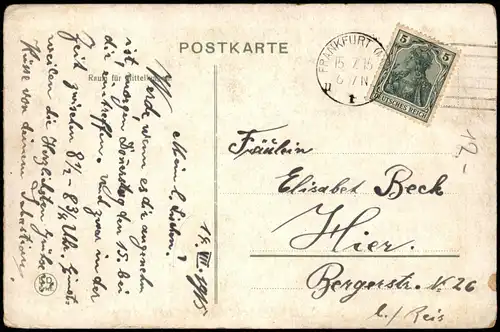 POSTKARTE
Raum für Mitteilungen
14. VII. 1915
Mein l. Lieschen!
Werde, wenn es dir angenehm
ist, morgen Donnerstag den 15. bei
dir eintreffen. Und zwar in der
Zeit zwischen 8 1/2 - 8 3/4 Uhr.
weilen die Herzlichsten Grüße und
Küsse von deinem Sebastian.
FRANKFURT
15.7.15
6-7 N
5 5
DEUTSCHES REICH
Fräulein
Elisabet Beck
Hier.
Bergerstr. № 26
b./ Reis
12,-